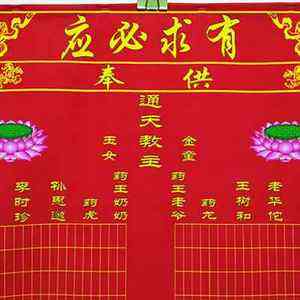 有求必应
供奉
老华佗
王树和
药龙
药王老爷
金童
通天教主
玉女
药王奶奶
药虎
孙思邈
李时珍